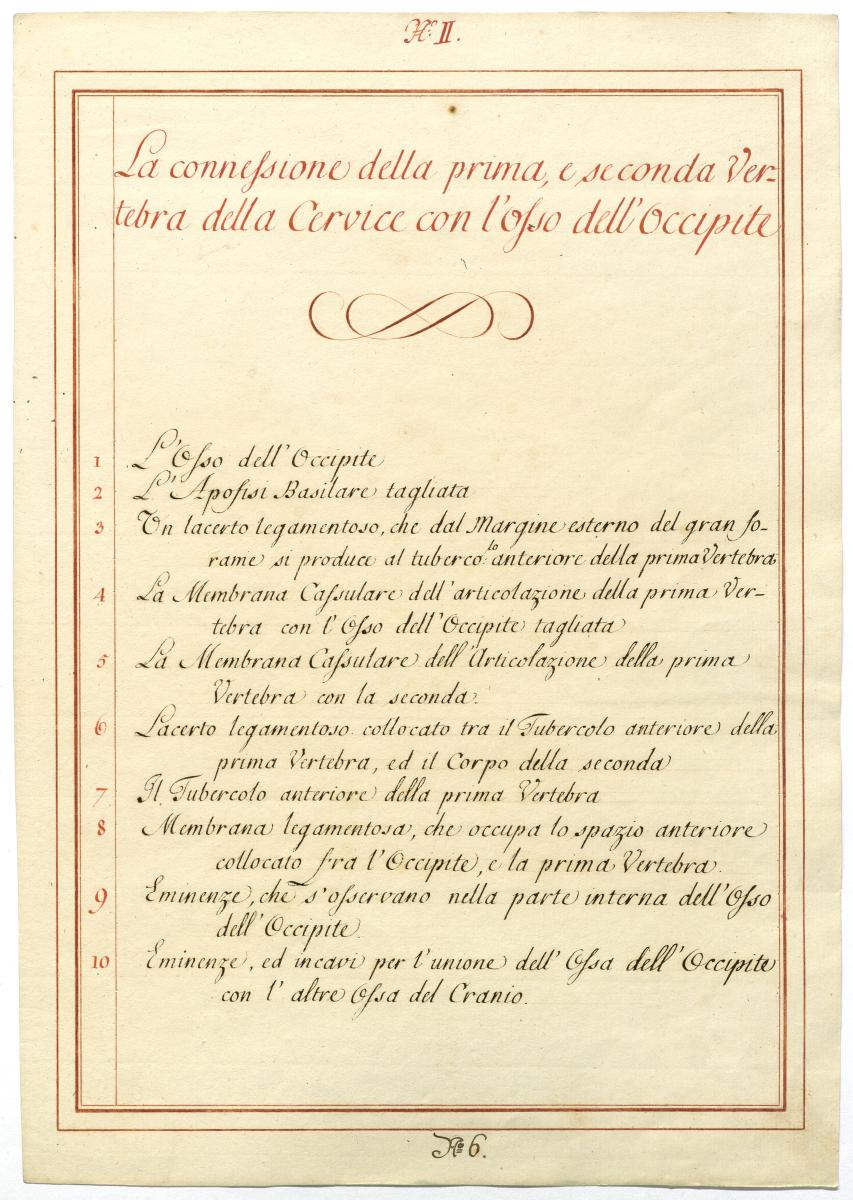 N.º II.
La conneſsione della prima, e seconda Ver-
tebra della Cervice con l'Oſso dell'Occipite
1 L'Oſso dell'Occipite
2 L'Apofisi Basilare tagliata
3 Un lacerto legamentoso, che dal Margine esterno del gran fo-
rame si produce al tuberco:lo anteriore della prima Vertebra
4 La Membrana Caſsulare dell'articolazione della prima Ver-
tebra con l'Oſso dell'Occipite tagliata
5 La Membrana Caſsulare dell'Articolazione della prima
Vertebra con la seconda.
6 Lacerto legamentoso collocato tra il Tubercolo anteriore della
prima Vertebra, ed il Corpo della seconda
7 Il Tubercolo anteriore della prima Vertebra
8 Membrana legamentosa, che occupa lo spazio anteriore
collocato fra l'Occipite, e la prima Vertebra.
9 Eminenze, che s'oſservano nella parte interna dell'Oſso
dell'Occipite.
10 Eminenze, ed incavi per l'unione dell'Oſsa dell'Occipite
con l'altre Oſsa del Cranio.
Nº 6.